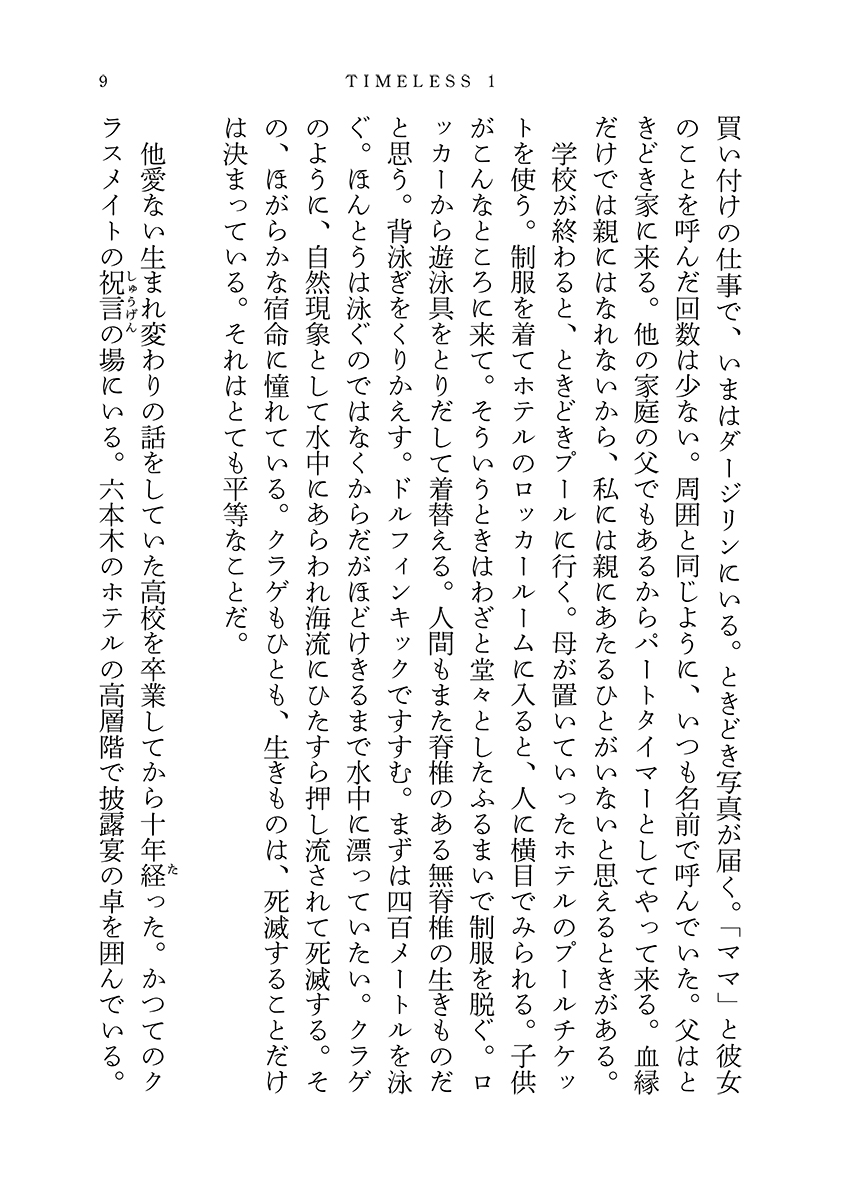 9
TIMELESS 1
買い付けの仕事で、いまはダージリンにいる。ときどき写真が届く。「ママ」と彼女
のことを呼んだ回数は少ない。周囲と同じように、いつも名前で呼んでいた。父はと
きどき家に来る。他の家庭の父でもあるからパートタイマーとしてやって来る。血縁
だけでは親にはなれないから、私には親にあたるひとがいないと思えるときがある。
学校が終わると、ときどきプールに行く。母が置いていったホテルのプールチケッ
トを使う。制服を着てホテルのロッカールームに入ると、人に横目でみられる。子供
がこんなところに来て。そういうときはわざと堂々としたふるまいで制服を脱ぐ。ロ
ッカーから遊泳具をとりだして着替える。人間もまた脊椎のある無脊椎の生きものだ
と思う。背泳ぎをくりかえす。ドルフィンキックですすむ。まずは四百メートルを泳
ぐ。ほんとうは泳ぐのではなくからだがほどけきるまで水中に漂っていたい。クラゲ
のように、自然現象として水中にあらわれ海流にひたすら押し流されて死滅する。そ
の、ほがらかな宿命に憧れている。クラゲもひとも、生きものは、死滅することだけ
は決まっている。それはとても平等なことだ。
他愛ない生まれ変わりの話をしていた高校を卒業してから十年経った。かつてのク
た
ラスメイトの祝言の場にいる。六本木のホテルの高層階で披露宴の卓を囲んでいる。
しゅうげん